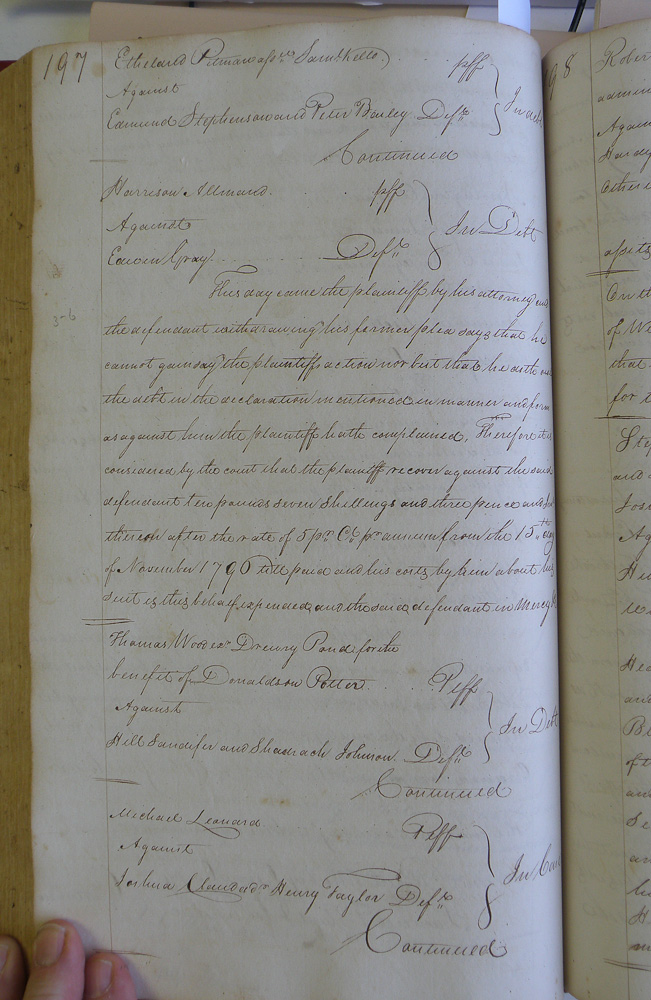 197
Etheldred Pitman assee Saml Kello . . plff
Against
Edmund Stephenson and Peter Bailey Defts
In debt
Continued
Harrison Allmand . . plff
Against
In Debt
Edwin Gray Deft
This day came the plaintiff by his attorney and
the defendant withdrawing his former plea says that he
cannot gainsay the plaintiffs action nor but that he doth owe
3-6
the debt in the declaration mentioned in manner and form
as against him the plaintiff hath complained, Therefore it is
considered by the court that the plaintiff recover against the said
defendant ten pounds seven Shillings and three pence and
thereon after the rate of 5 pr Ct pr annum from the 15th day
of November 1790 till paid and his costs by him about his
suit in this behalf expended, and the said defendant in Mercy &
Thomas Wood exr Drewry Pond for the
benefit of Donaldson Potter . . Plff
Against
In Debt
Hill Sandifer and Shadrach Johnson Defts
Continued
Michael Leonard Plff
Against
In Case
Joshua Claud adr Henry Taylor Deft
Continued
98
Rober
admin
Again
Hardy
Other
assets
On th
of We
that
for t
Step
and
Josi
Ag
He
and
of
and
Se
an
H